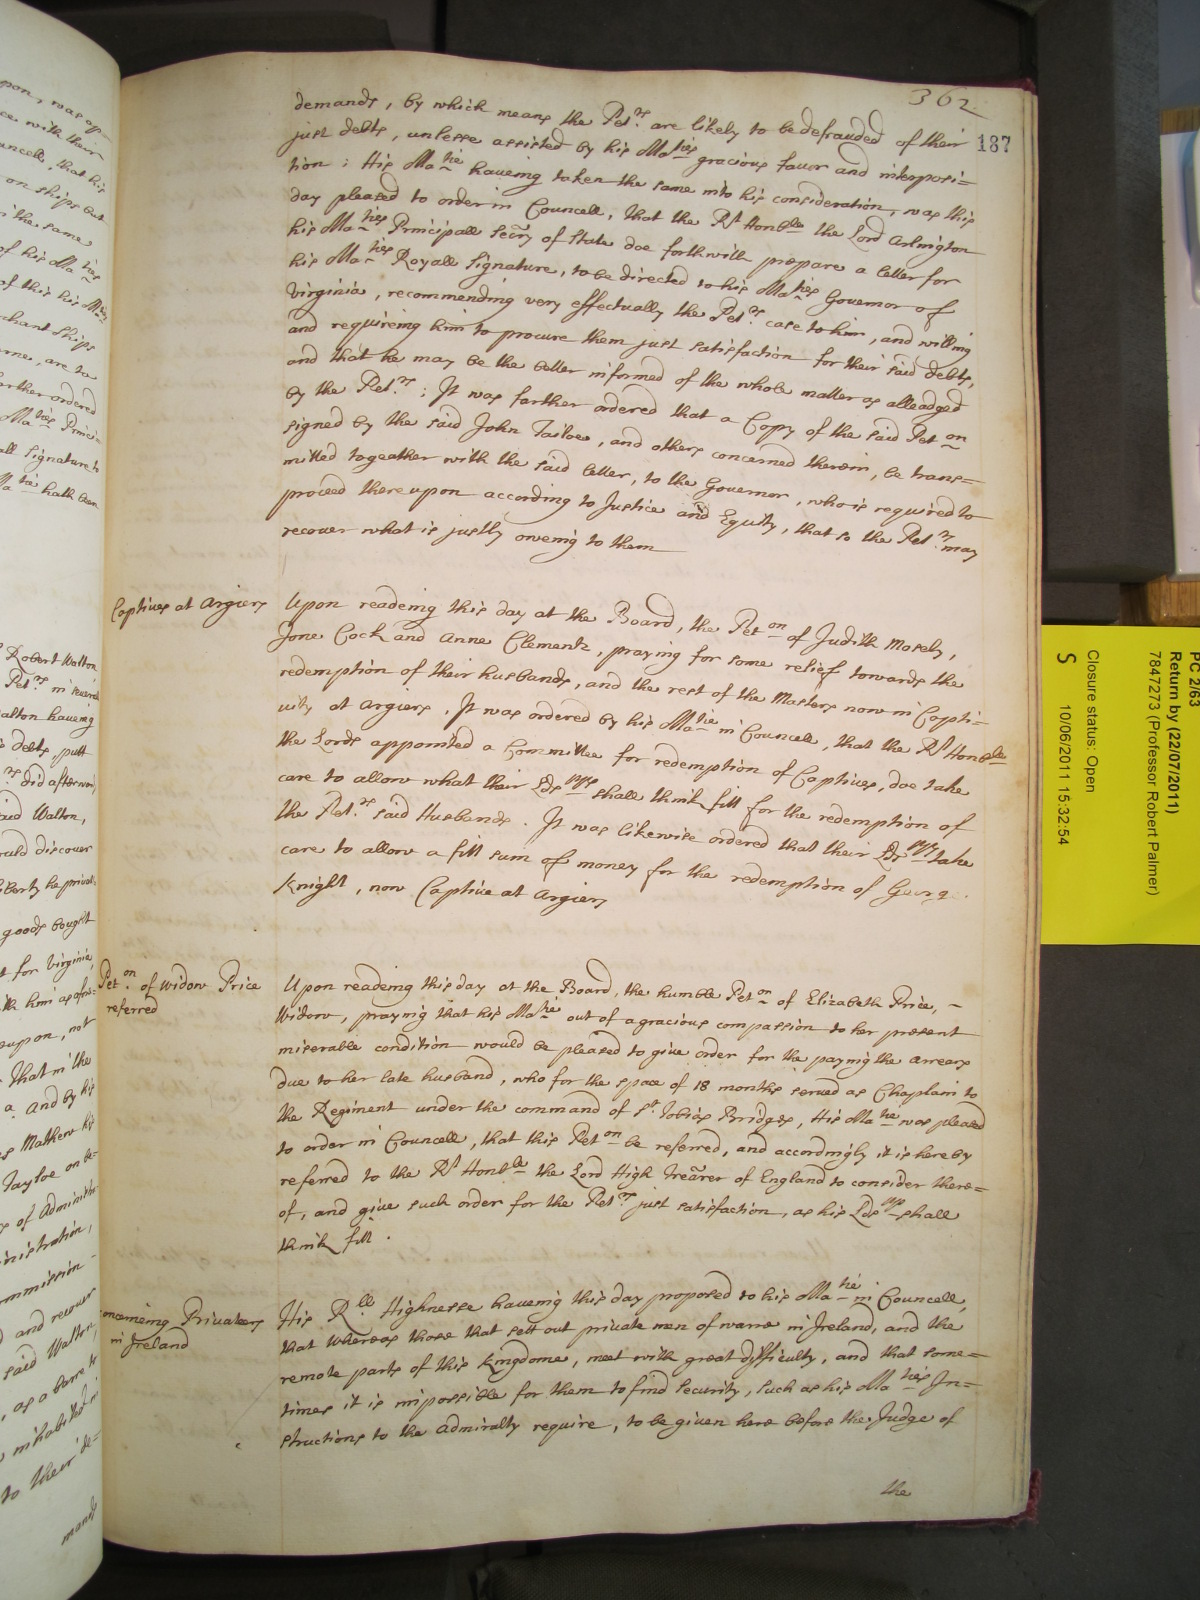 362
187
demands, by which means the Pet.rs are likely to be defrauded of their
just debts, unlesse assisted by his Ma.ties gracious favor and interposi=
tion: His Ma.tie haveing taken the same into his consideration, was this
day pleased to order in Councell, that the R.t Hon.ble the Lord Arlington
his Ma.ties Principall Secry of State doe forthwith prepare a letter for
his Ma.ties Royall Signature, to be directed to his Ma.ties Governor of
Virginia, recommending very effectually the Pet.rs case to him, and willing
and requireing him to procure them just satisfaction for their said debts,
and that he may be the better informed of the whole matter as alleadged
by the Pet.rs; It was farther ordered that a Copy of the said Pet.on
signed by the said John Tailoe, and others concerned therein, be trans=
mitted togeather with the said letter, to the Governor, who is required to
proceed thereupon according to Justice and Equity, that so the Pet.rs may
recover what is justly oweing to them
Captives at Argiers
Upon readeing this day at the Board, the Pet.on of Judith Mosely,
Jone Cock and Anne Clements, praying for some relief towards the
redemption of their husbands, and the rest of the Masters now in Capti=
vity at Argiers, It was ordered by his Ma.tie in Councell, that the R.t Hon.ble
the Lords appointed a Committee for redemption of Captives, doe take
care to allow what their Ldp.pps shall think fitt for the redemption of
the Pet.rs said Husbands. It was likewise ordered that their Ldp.pps take
care to allow a fitt sum of money for the redemption of George
Knight, now Captive at Argiers
Pet.on of widow Price
referred
Upon readeing this day at the Board, the humble Pet.on of Elizabeth Price,
Widow, praying that his Ma.tie out of a gracious compassion to her present
miserable condition would be pleased to give order for the paying the arrears
due to her late husband, who for the space of 18 months served as Chaplain to
the Regiment under the command of S.r Tobias Bridges, His Ma.tie was pleased
to order in Councell, that this Pet.on be referred, and accordingly it is hereby
referred to the R.t Hon.ble the Lord High Trearer of England to consider there=
of, and give such order for the Pet.rs just satisfaction, as his Ldp.pp shall
think fitt.
oncerneing Privateers
in Ireland
His R.ll Highnesse haveing this day proposed to his Ma.tie in Councell,
that whereas those that sett out private men of warre in Ireland, and the
remote parts of this Kingdome, meet with great difficulty, and that some=
times it is impossible for them to find security, such as his Ma.ties In=
structions to the Admiralty require, to be given here before the Judge of
the
PC 2/63
Return by (22/07/2011)
7847273 (Professor Robert Palmer)
Closure status: Open
S 10/06/2011 15:32:54